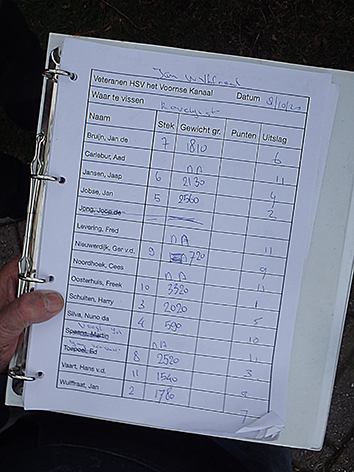 Jan Wulffraat
Veteranen HSV het Voornse Kanaal Datum 8/10/20
Waar te vissen
Naam Stek Gewicht gr. Punten Uitslag
Bruijn, Jan de 7 1810 6
Carlebur, Aad nA 11
Jansen, Jaap 6 2130 4
Jobse, Jan 5 2560 2
Jong, Joop de
Levering, Fred nA 11
Nieuwerdijk, Ger v.d. 9 720 9
Noordhoek, Cees nA 11
Oosterhuis, Freek 10 3320 1
Schulten, Harry 3 2020 5
Silva, Nuno da 4 590 10
Spaans, Martin nA 11
Toepoel, Ed 8 2520 3
Vaart, Hans v.d. 11 1540 8
Wulffraat, Jan 2 1780 7